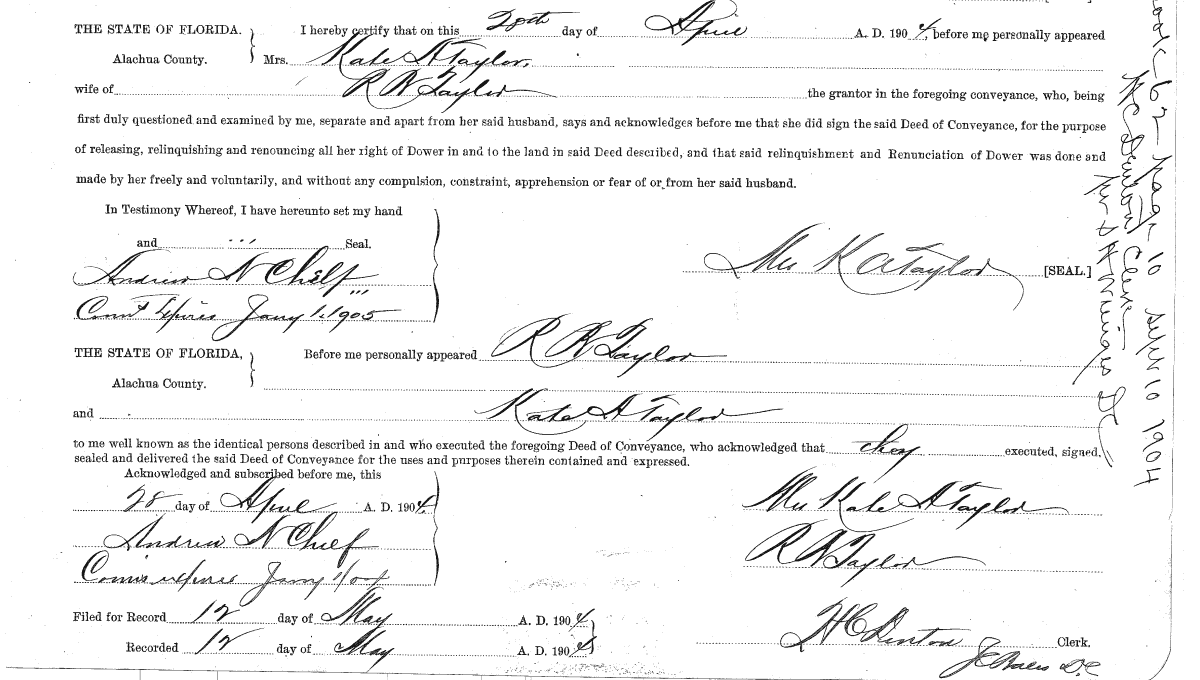 THE STATE OF FLORIDA. I hereby certify that on this 28th day of April A. D. 1904, before me personally appeared
Alachua County. Mrs. Kate A Taylor,
wife of R W Taylor the grantor in the foregoing conveyance, who, being
first duly questioned and examined by me, separate and apart from her said husband, says and acknowledges before me that she did sign the said Deed of Conveyance, for the purpose
of releasing, relinquishing and renouncing all her right of Dower in and to the land in said Deed described, and that said relinquishment and Renunciation of Dower was done and
made by her freely and voluntarily, and without any compulsion, constraint, apprehension or fear of or from her said husband.
In Testimony Whereof, I have hereunto set my hand
and Seal.
Mrs K A Taylor [SEAL.]
Andrew N
Expires Jany 1. 1905
THE STATE OF FLORIDA, Before me personally appeared R W Taylor
Alachua County.
and Kate A Taylor
to me well known as the identical persons described in and who executed the foregoing Deed of Conveyance, who acknowledged that they executed, signed,
sealed and delivered the said Deed of Conveyance for the uses and purposes therein contained and expressed.
Acknowledged and subscribed before me, this
28 day of April A. D. 1904
Andrew N
expires Jany
Mrs Kate A Taylor
R W Taylor
Filed for Record 12 day of May A. D. 1904
Recorded 12 day of May A. D. 1904
H C Denton Clerk.
D.C
page 10 Sept 10 1904
H C Denton Clerk